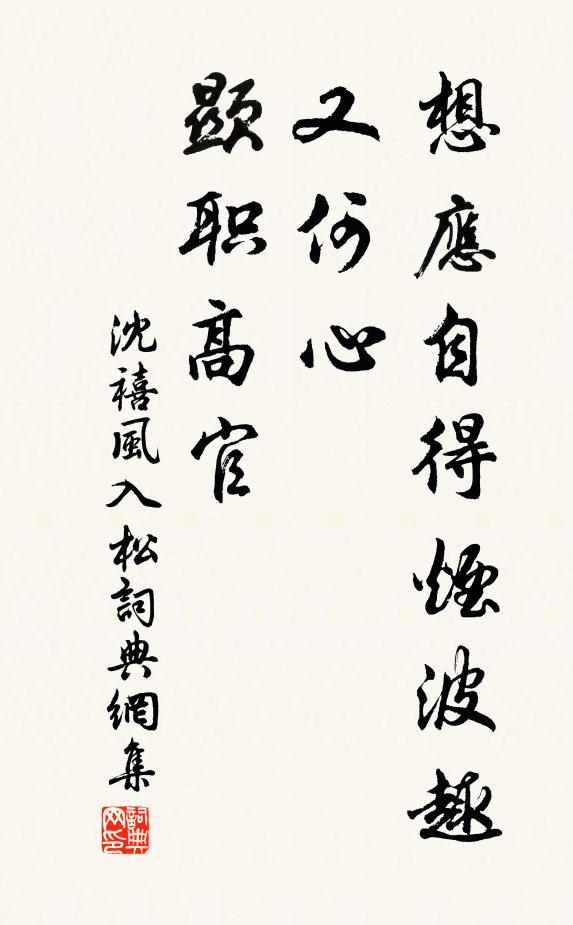 想應自得煙波趣
又何心
顯职高官
沈禧風入松詞典網集
詞典网印